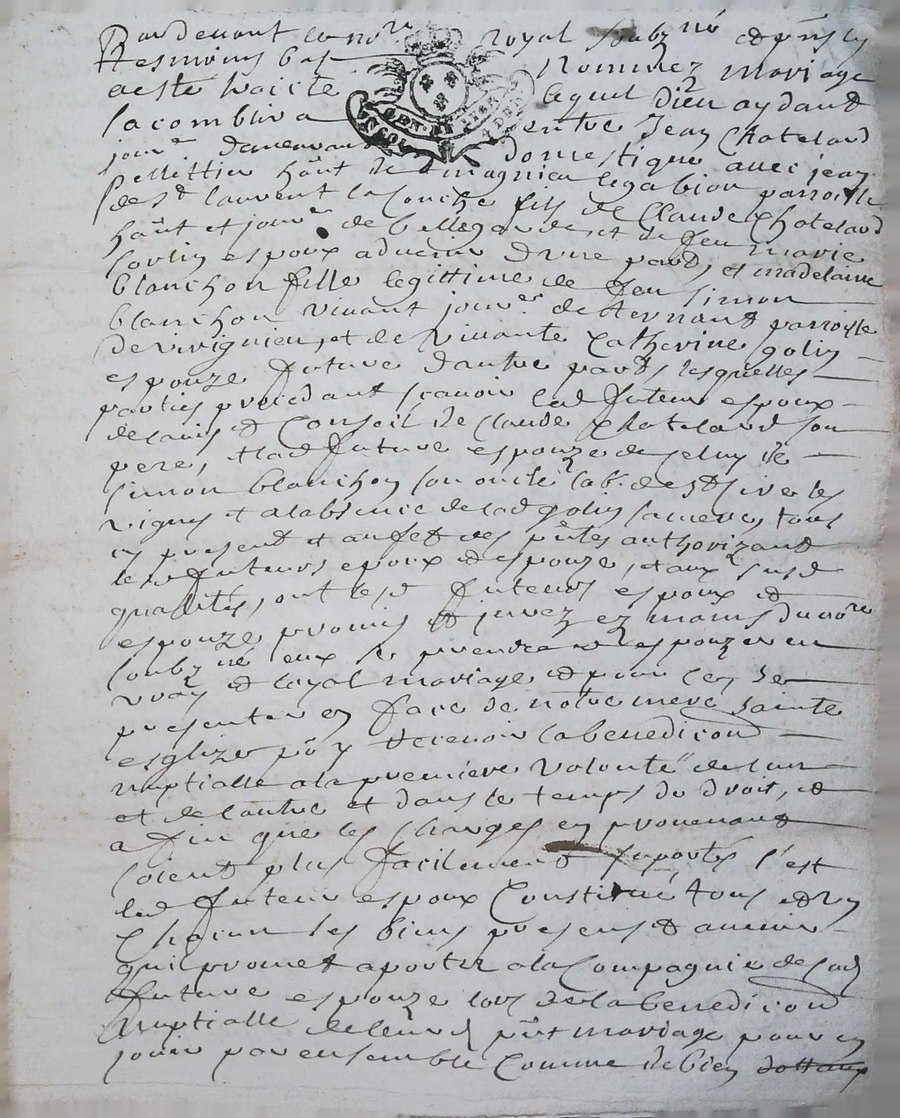 Pardevant le no.re royal soubz né et pn̄s les
tesmoins bas nommez mariage
a este traicte lequel dieu aydant
sacomblira entre Jean Chatelard
jour.r domestique avec jean
pellittier hānt de magnieu legabion parroisse
de s.t laurent la conche fils de Claude Chatelard
hānt et jour.r de bellegarde, et de feu marie
espoux advenir dune part, et madelaine
blanchon fille legittime de feu simon
blanchon vivant jour.r de parroisse
de vivignieu, et de vivante Catherine golin
espouze future dautre part, lesquelles
parties procedant scavoir led futeur espoux
de lavis et Conseil de Claude Chatelard son
pere, et lad future espouze de celuy de
simon blanchon son oncle lab. de st sive les
vignes et a labsence de lad golin sa mere, tous
cy present et au fet des pn̄tes authorizant
lesd futeurs epoux et espouze, et aux susd
qualités, ont lesd futeurs espoux et
espouze promis et jurez ez mains du no.re
soubz né eux se prendre et espouzer en
vray et loyal mariage et pour cey se
presenter en face de notre mere sainte
esglize po y recevoir la benediction
nuptialle a la premiere volonté de lun
et de lautre et dans le temps de droit, et
afin que les charges en provenant
soient plus facilement suportés s'est
led futeur espoux Constitué tous et un
chacun ses biens presens et avenir
quil promet aporter a la Compagnie de sad
future espouze lors de la benediction
nuptialle de leurd pn̄t mariage pour en
jouir par ensemble Comme de bien dottaux